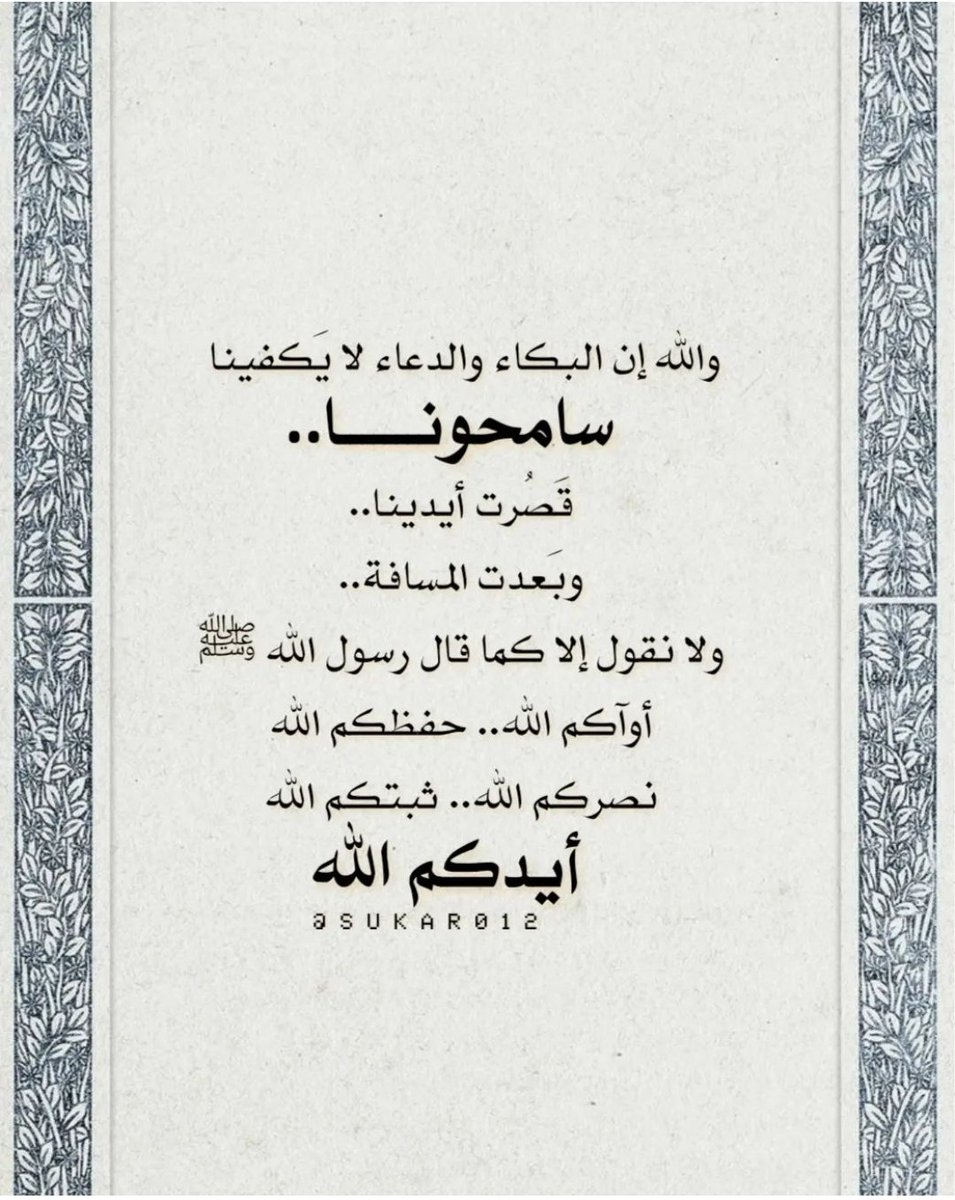 والله إن البكاء والدعاء لا يَكفينا
سامحونـــــا..
قَصُرت أيدينا..
وبَعدت المسافة..
ولا نقول إلا كما قال رسول الله ﷺ
أوآكم الله.. حفظكم الله
نصركم الله.. ثبتكم الله
أيدكم الله
@SUKAR012